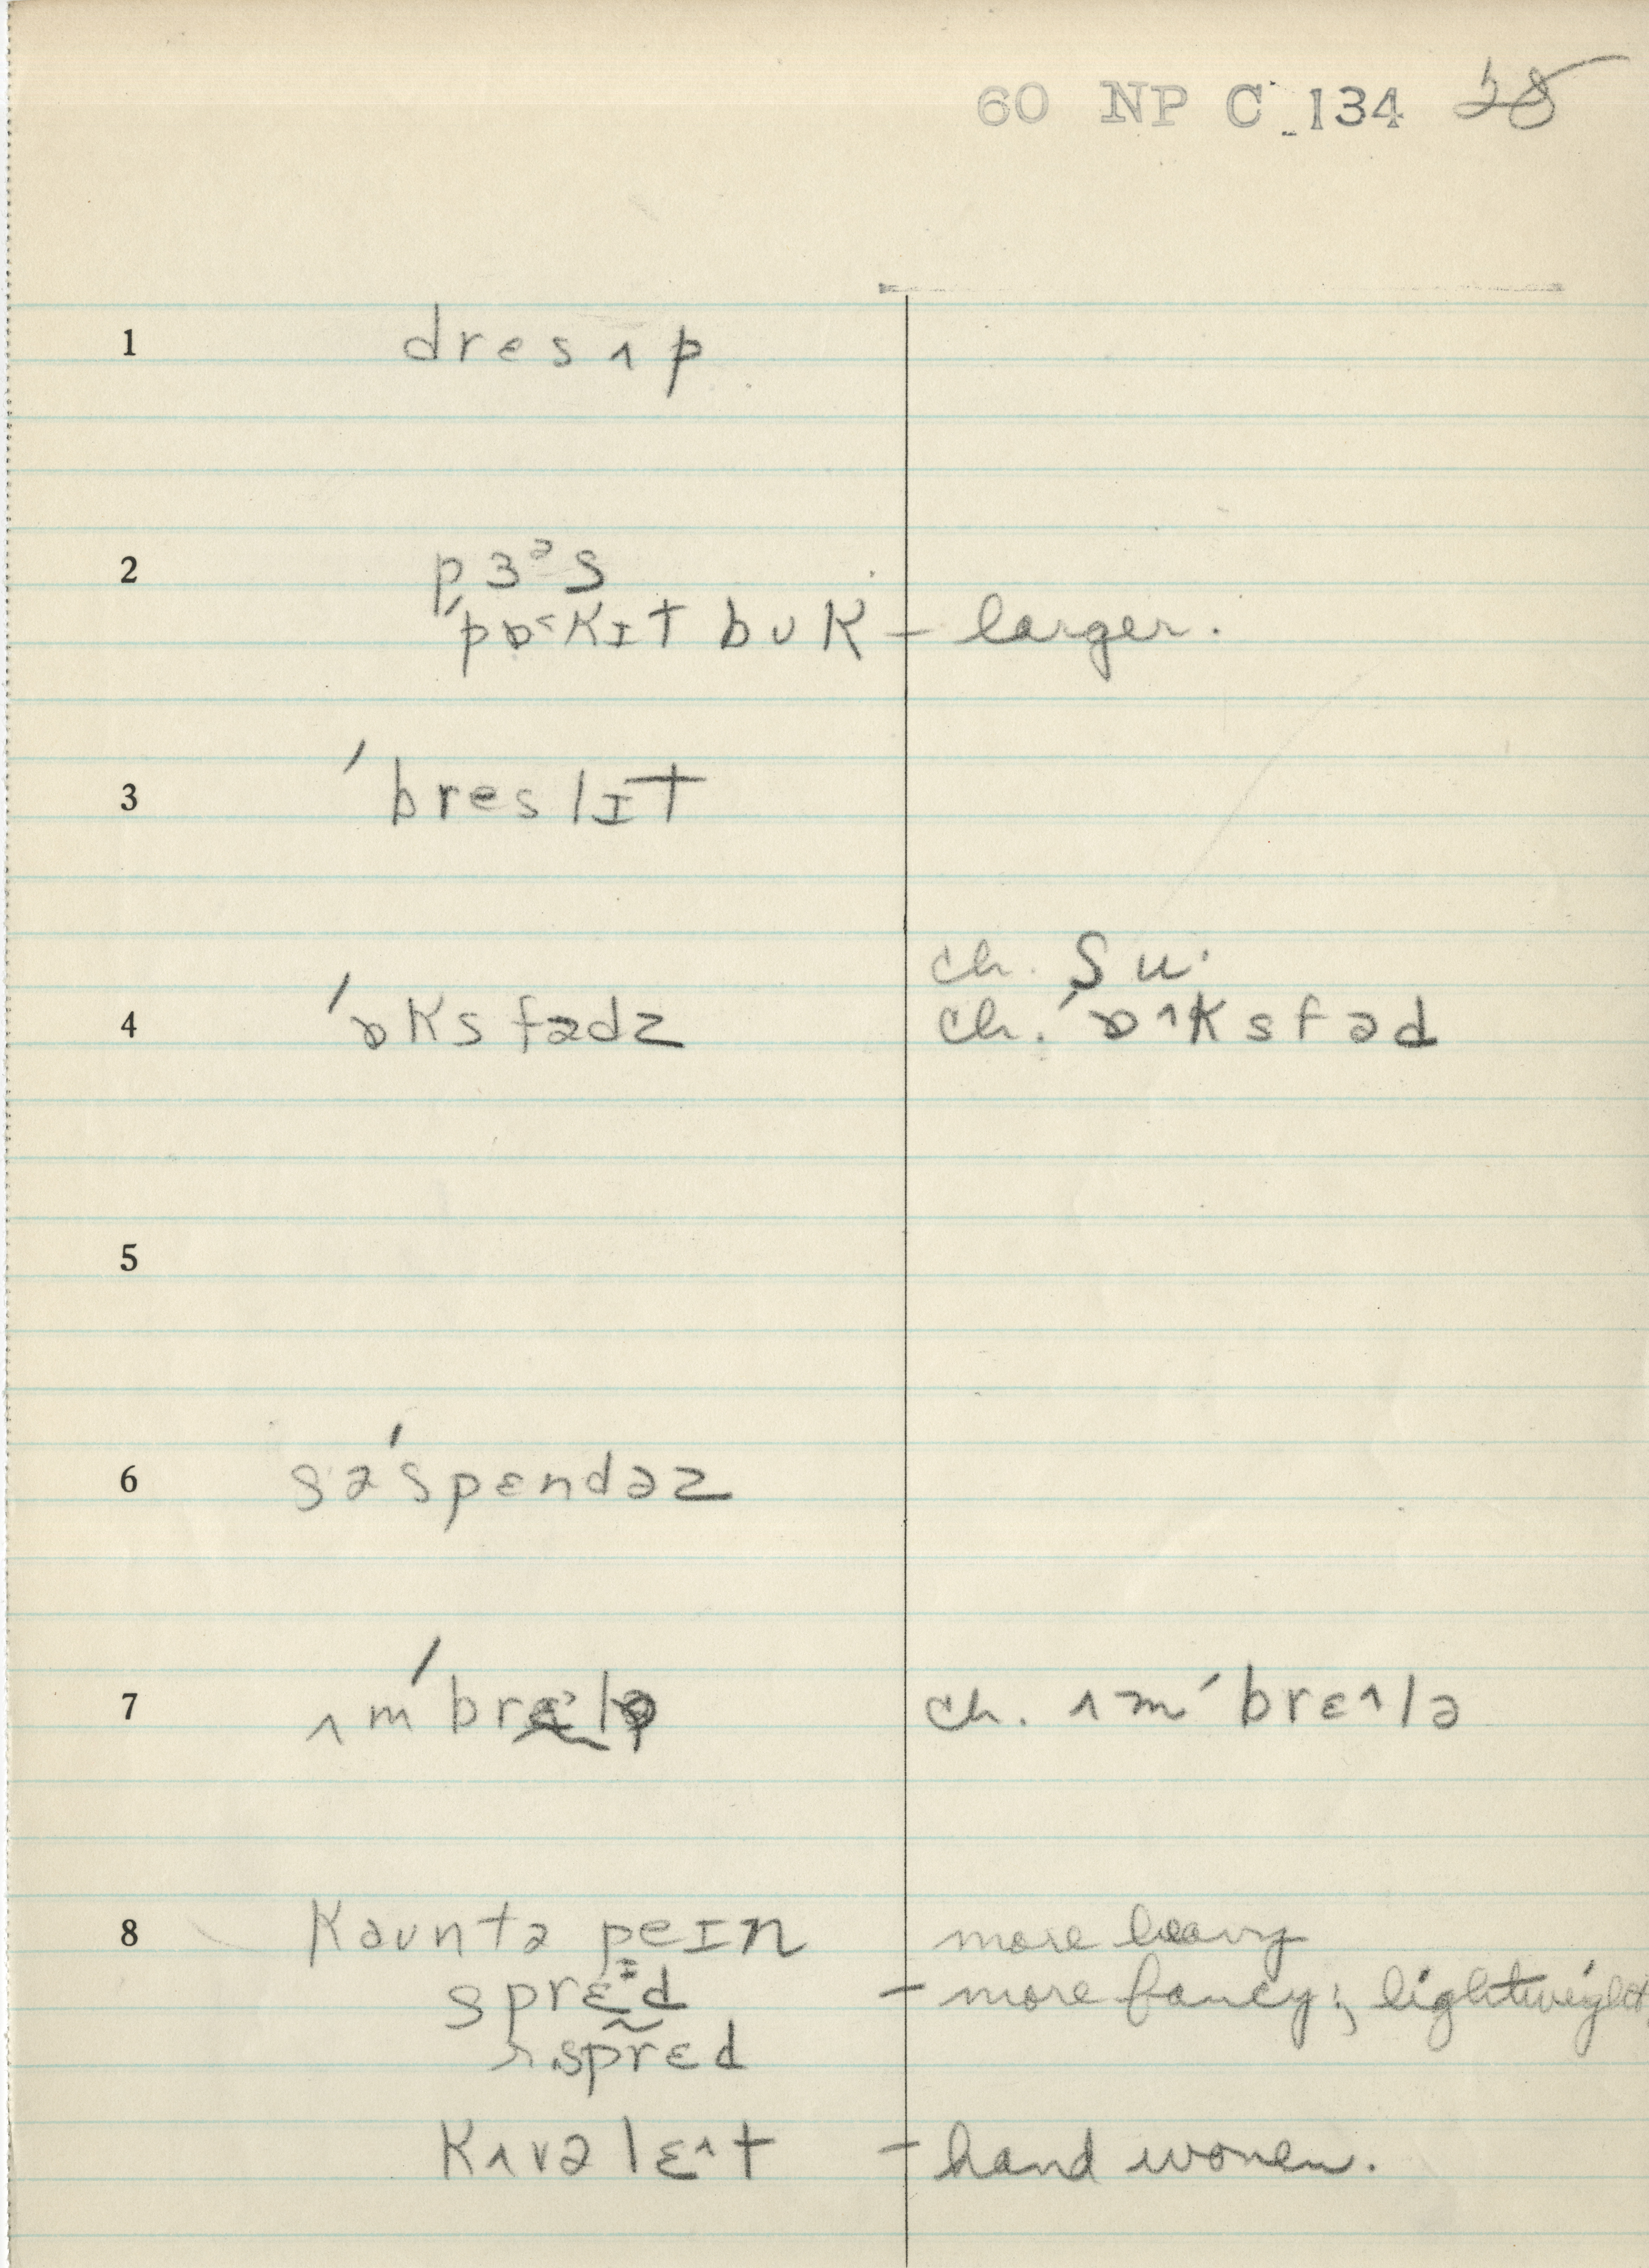 60 NP C 134 28
1 dresʌp
2 pɜᵊs
ˈpɒ˂kɪt bʊk – larger.
3 ˈbreslɪt
ch. ʃu·
4 ˈɒksfədz ch. ˈɒ^ksfəd
5
6 səˈspɛndəz
7 ʌmˈbrɛlə ch. ʌmˈbrɛ^lə
8 kaʊntə peɪn more heavy
sprɛᶤd – more fancy; lightweight
sprɛd
kʌvəlɛ^t – hand woven.